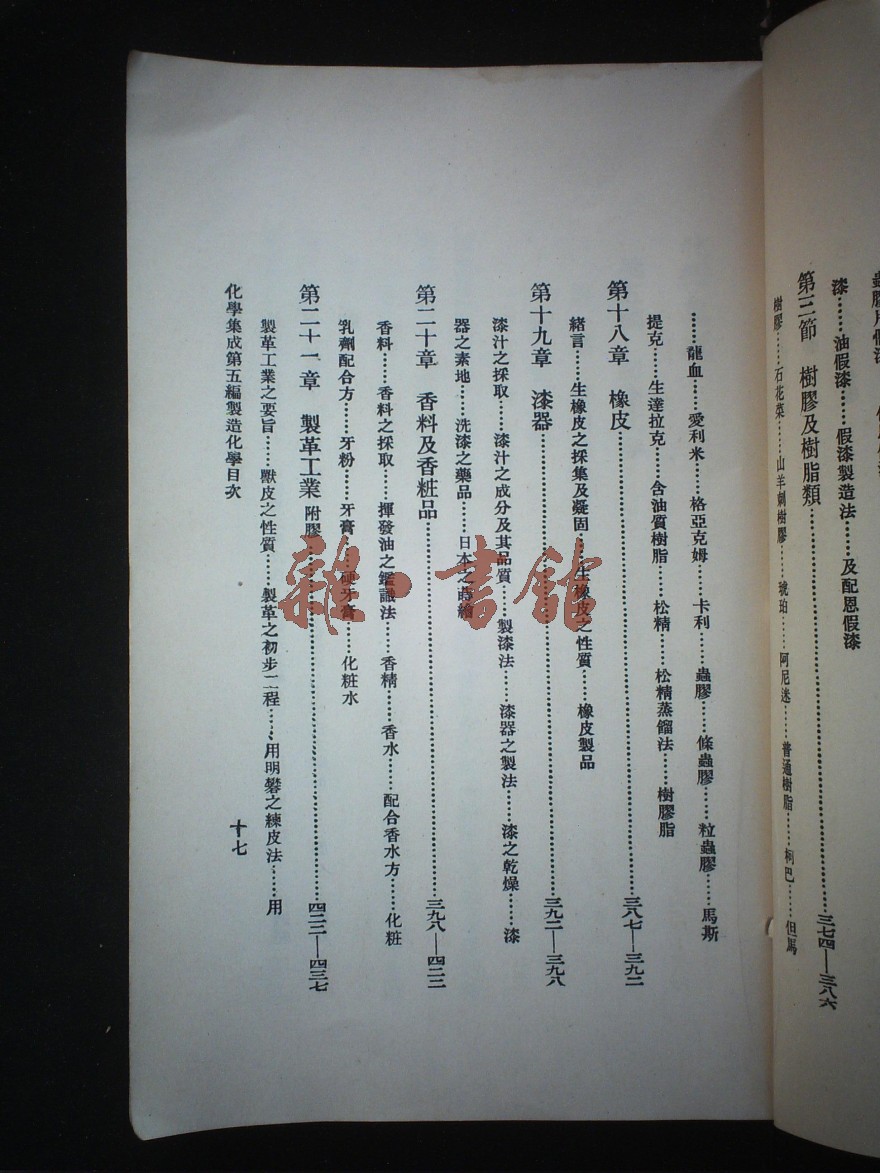 漆………油假漆………假漆製造法………及配恩假漆
第三節　樹膠及樹脂類………三七四—三八六
樹膠………石花菜………山羊刺樹膠………琥珀………阿尼迷………普通樹脂………柯巴………但馬
………龍血………愛利米………格亞克姆………卡利………蟲膠………條蟲膠………粒蟲膠………馬斯
提克………生達拉克………含油質樹脂………松精………松精蒸餾法………樹膠脂
第十八章　橡皮………三八七—三九二
緒言………生橡皮之採集及凝固………生橡皮之性質………橡皮製品
第十九章　漆器………三九二—三九八
漆汁之採取………漆汁之成分及其品質………製漆法………漆器之製法………漆之乾燥………漆
器之素地………洗漆之藥品………日本之蒔繪
第二十章　香料及香粧品………三九八—四二三
香料………香料之採取………揮發油之鑑識法………香精………香水………配合香水方………化粧
乳劑配合方………牙粉………牙膏………硬牙膏………化粧水
第二十一章　製革工業 附膠………四二三—四三七
製革工業之要旨………獸皮之性質………製革之初步工程………用明礬之練皮法………用
化學集成第五編製造化學目次
十七
雜·書館